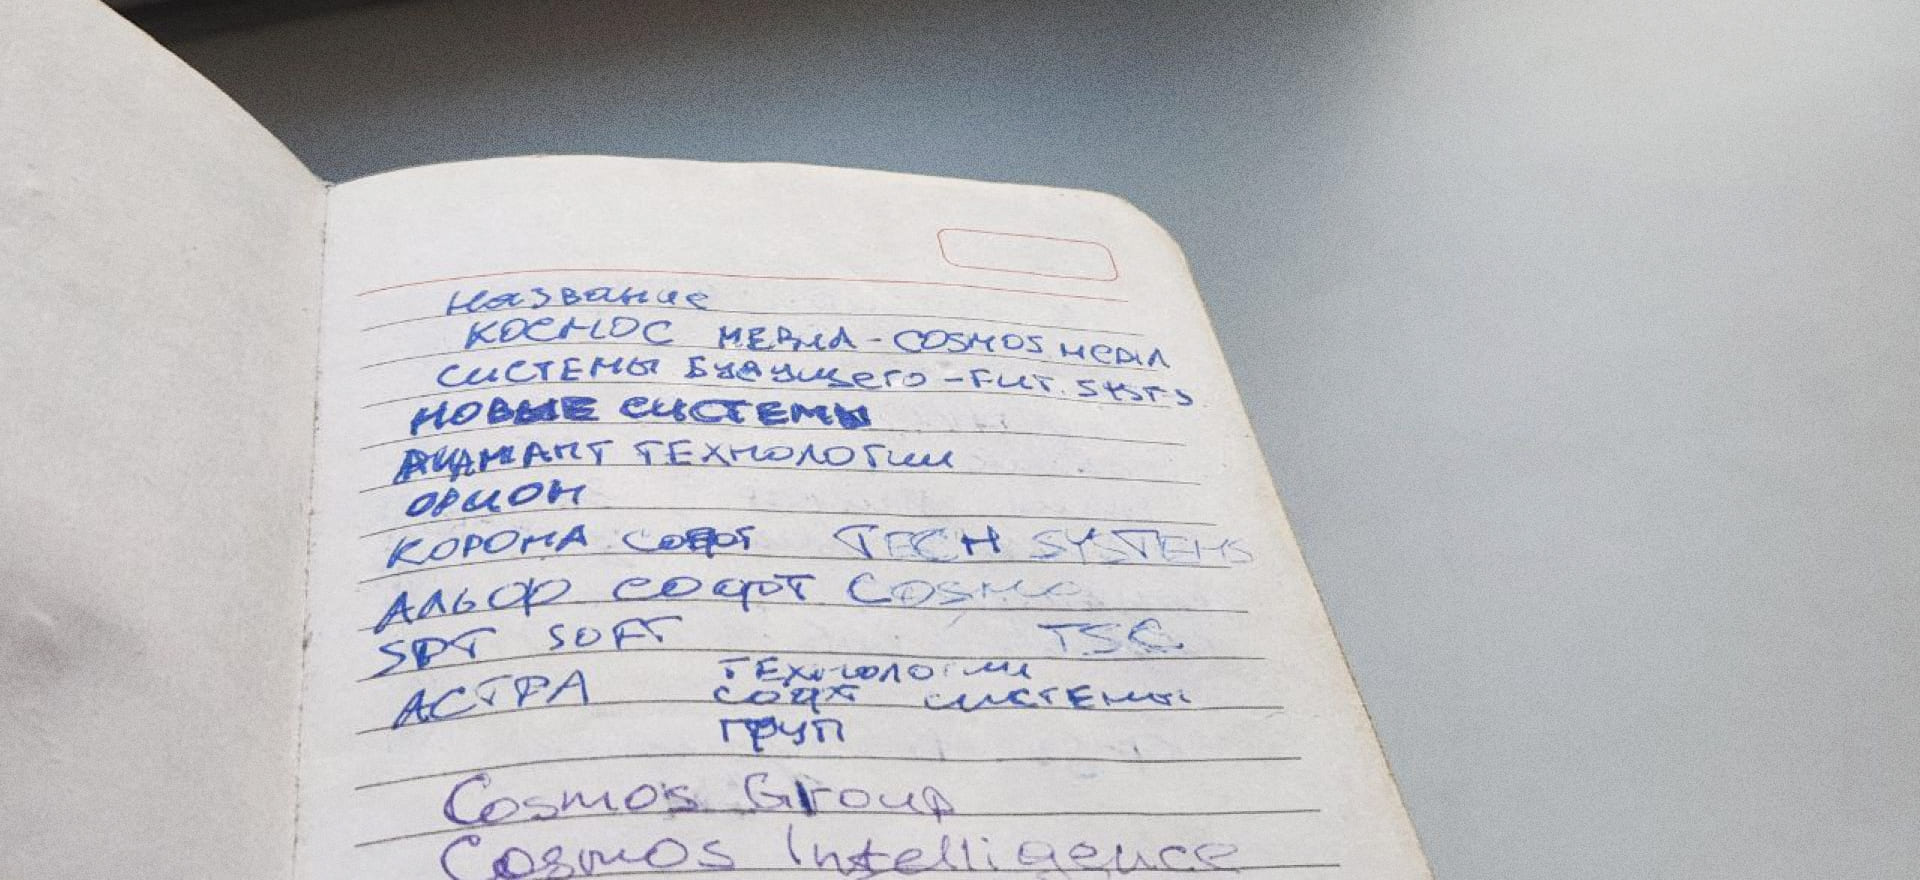 название
КОСМОС МЕДИА - COSMOS МЕДИА
СИСТЕМЫ БУДУЩЕГО - FUT. SYSTS
НОВЫЕ СИСТЕМЫ
АДАМАНТ ТЕХНОЛОГИИ
ОРИОН
КОРОНА СОФТ TECH SYSTEMS
АЛЬОР СОФТ COSMO
SPT SOFT TSG
ТЕХНОЛОГИИ
АСТРА СОФТ СИСТЕМЫ
ГРУП
Cosmos Group
Cosmos Intelligence